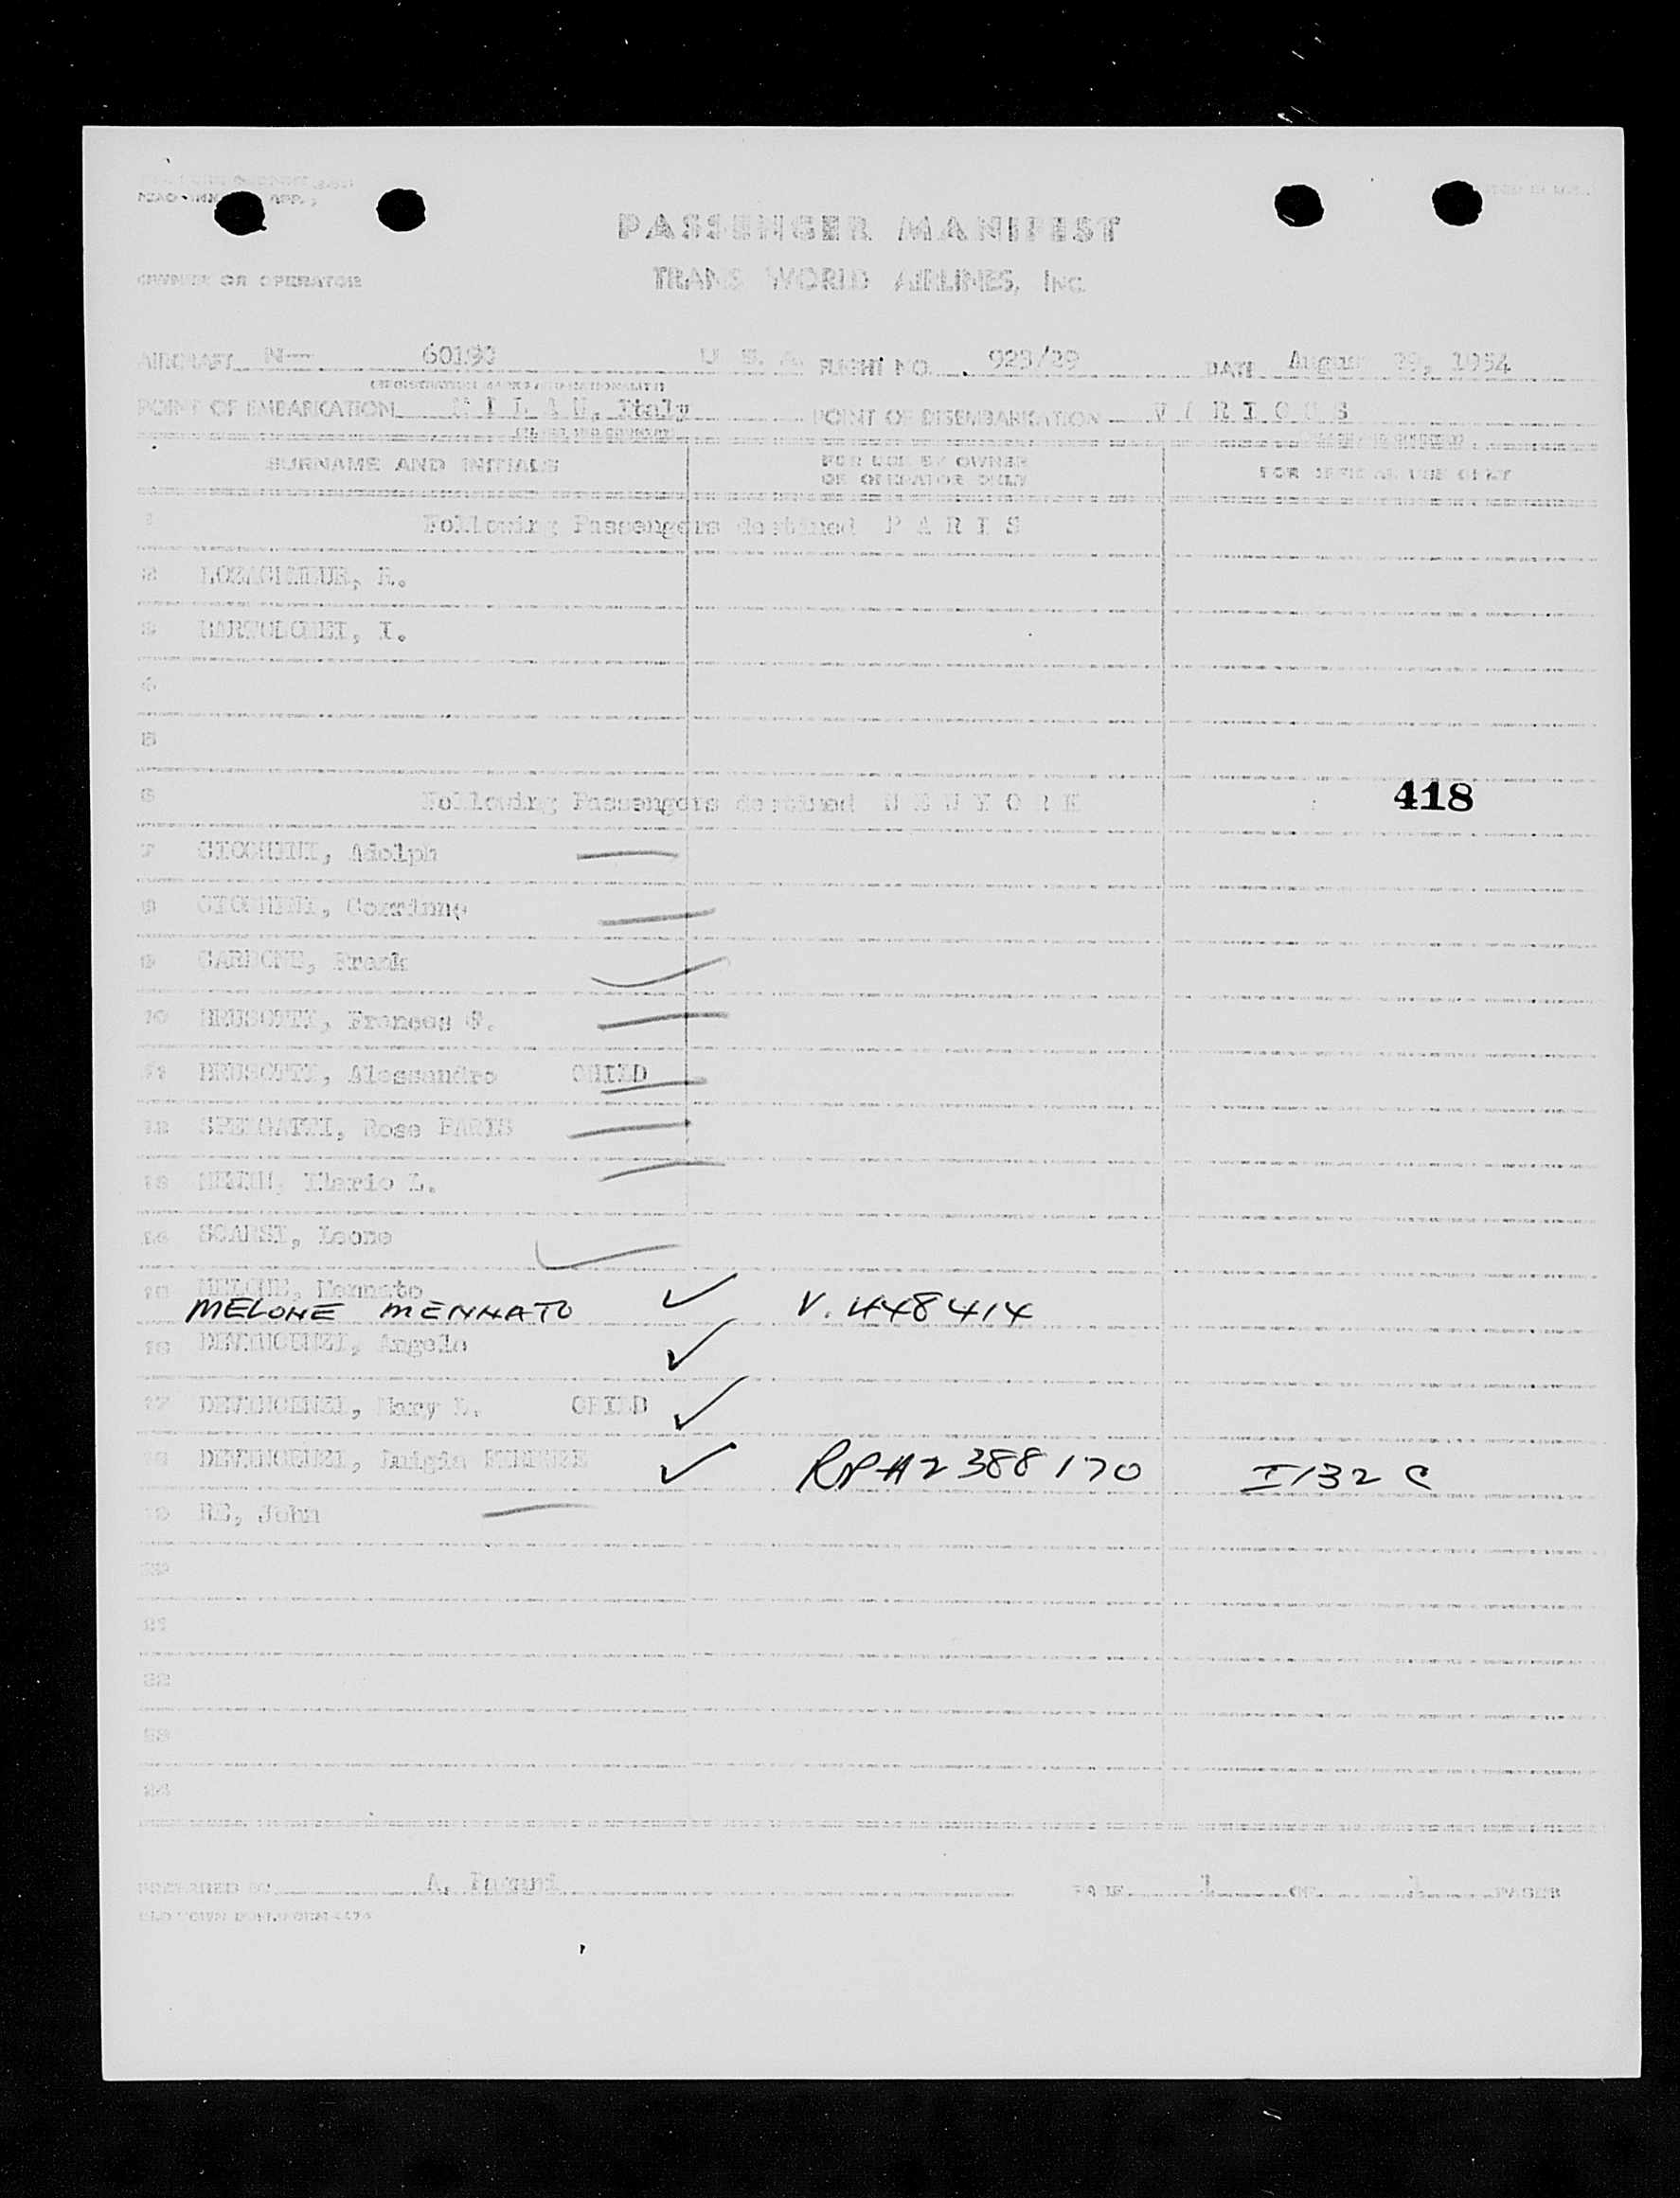 PASSENGER MANIFEST
OWNER OR OPERATOR TRANS WORLD AIRLINES, INC.
AIRCRAFT N— 60190 U. S. A. FLIGHT NO. 923/29 DATE August 29, 1954
POINT OF EMBARKATION M I L A N, Italy POINT OF DISEMBARKATION V A R I O U S
SURNAME AND INITIALS FOR USE BY OWNER OR OPERATOR ONLY FOR OFFICIAL USE ONLY
1 Following Passengers destined P A R I S
2 R.
3 I.
4
5
6 Following Passengers destined N E W Y O R K 418
7 Adolph
8 Corrinne
9 CARBONE, Frank
10 BRUSOTTI, Frances
11 BRUSOTTI, Alessandro CHILD
12 Rose
13 Ilario L.
14 SCARSI, Leone
15 MELONE, Mennato
MELONE MENNATO V. 448414
16 DEVINCENZI, Angelo
17 DEVINCENZI, Mary CHILD
18 DEVINCENZI, Luigia RP #2388170 I132 C
19 RE, John
20
21
22
23
24
PREPARED BY A. PAGE 1 OF 1 PAGES